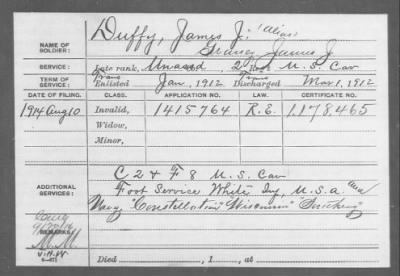 NAME OF SOLDIER: Duffy, James J. (alias)
James J.
SERVICE: Late rank, Unassd 2 Reg. U.S. Cav
TERM OF SERVICE: Enlisted Jan, 1912 Discharged Mar 1, 1912
DATE OF FILING. CLASS. APPLICATION NO. LAW. CERTIFICATE NO.
1914 Aug 10 Invalid, 1415764 R.E. 1,178,465
Widow,
Minor,
ADDITIONAL SERVICES:
C 2 & F 8 U.S. Cav
Foot Service White Inf, U.S.A. and
Navy, "Constellation" "Wisconsin"
REMARKS
Died , 1 , at